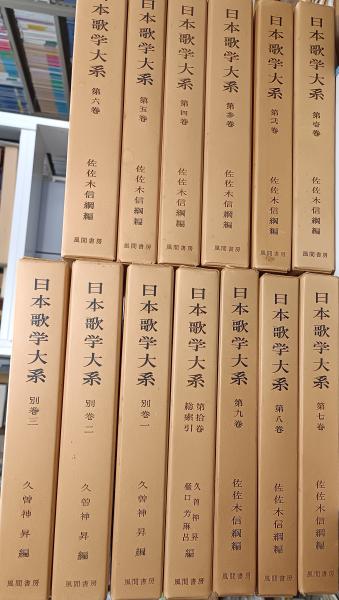 日本歌学大系 第壱巻 佐佐木信綱編 風間書房
日本歌学大系 第弐巻 佐佐木信綱編 風間書房
日本歌学大系 第参巻 佐佐木信綱編 風間書房
日本歌学大系 第四巻 佐佐木信綱編 風間書房
日本歌学大系 第五巻 佐佐木信綱編 風間書房
日本歌学大系 第六巻 佐佐木信綱編 風間書房
日本歌学大系 第七巻 佐佐木信綱編 風間書房
日本歌学大系 第八巻 佐佐木信綱編 風間書房
日本歌学大系 第九巻 佐佐木信綱編 風間書房
日本歌学大系 第拾巻
総索引
久曽神昇
樋口芳麻呂 編 風間書房
日本歌学大系 別巻一 久曽神昇編 風間書房
日本歌学大系 別巻二 久曽神昇編 風間書房
日本歌学大系 別巻三 久曽神昇編 風間書房